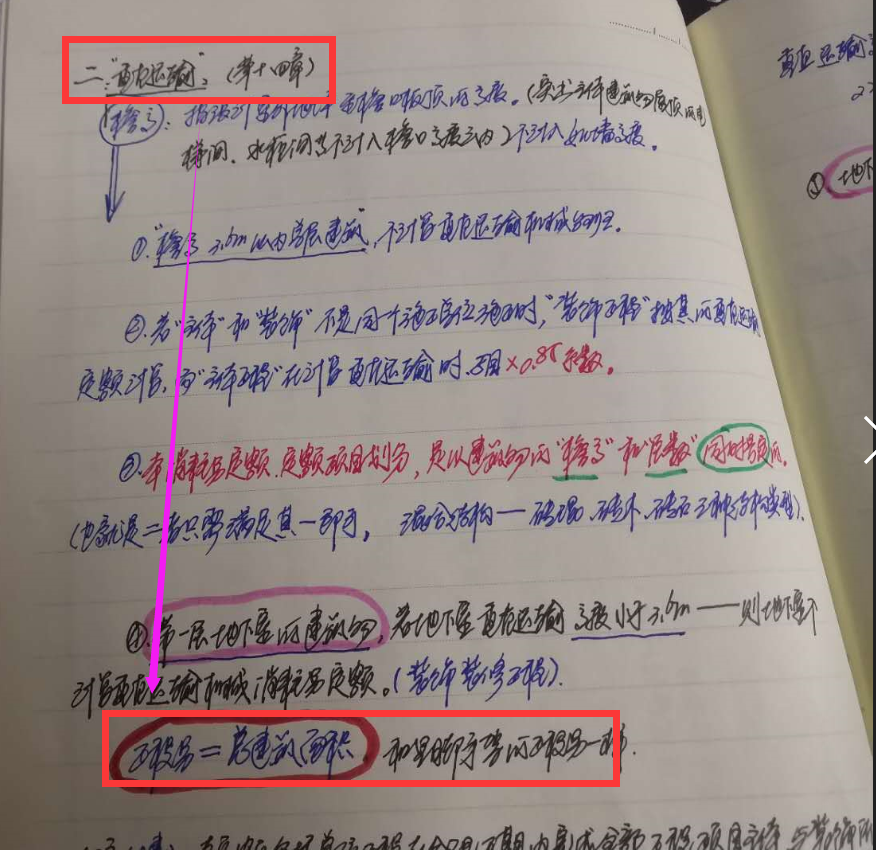 二."垂直运输":(第十四章)
"檐高": 指设计室外地坪至檐口板顶的高度。(突出主体建筑物屋顶的电
梯间、水箱间等不计入檐口高度之内)不计入 女儿墙高度。
①."檐高3.6m以内单层建筑",不计算垂直运输机械台班。
②.若"主体"和"装饰"不是同一个施工单位施工时,"装饰工程"按其的垂直运输
定额计算,而"主体工程"在计算垂直运输时,要×0.85系数。
③.本消耗量定额,定额项目划分,是以建筑物的"檐高"和"层数"同时界定的。
(也就是二者只要满足其一即可, 混合结构—砖混、砖木、砖石三种结构类型)。
④.第一层地下室的建筑物,若地下室垂直运输高度小于3.6m——则地下室不
计算垂直运输机械消耗量定额。(装饰装修工程).
工程量=总建筑面积. 和里脚手架的工程量一样.
垂直运输
① 地下